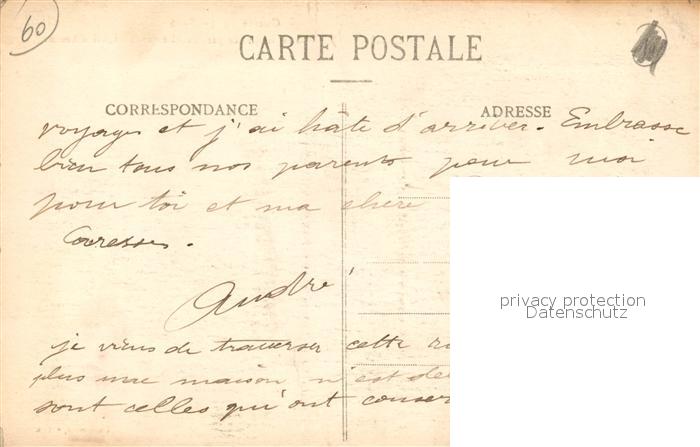 60
CARTE POSTALE
CORRESPONDANCE
ADRESSE
voyages et j'ai hâte d'arriver. Embrasse
bien tous nos parents pour moi
pour toi et ma chère
Caresses.
André
je viens de traverser cette
plus une maison n'est de
sont celles qu'ont conser
privacy protection
Datenschutz